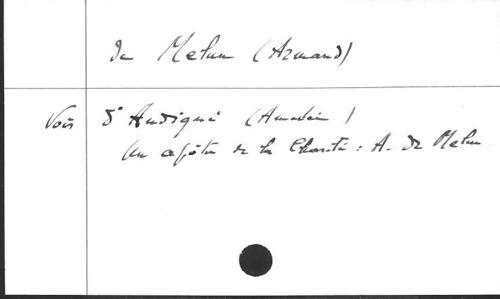 de Melun (Armand)
Voir d'Andigné (Amédée)
Un apôtre de la Charité : A. de Melun